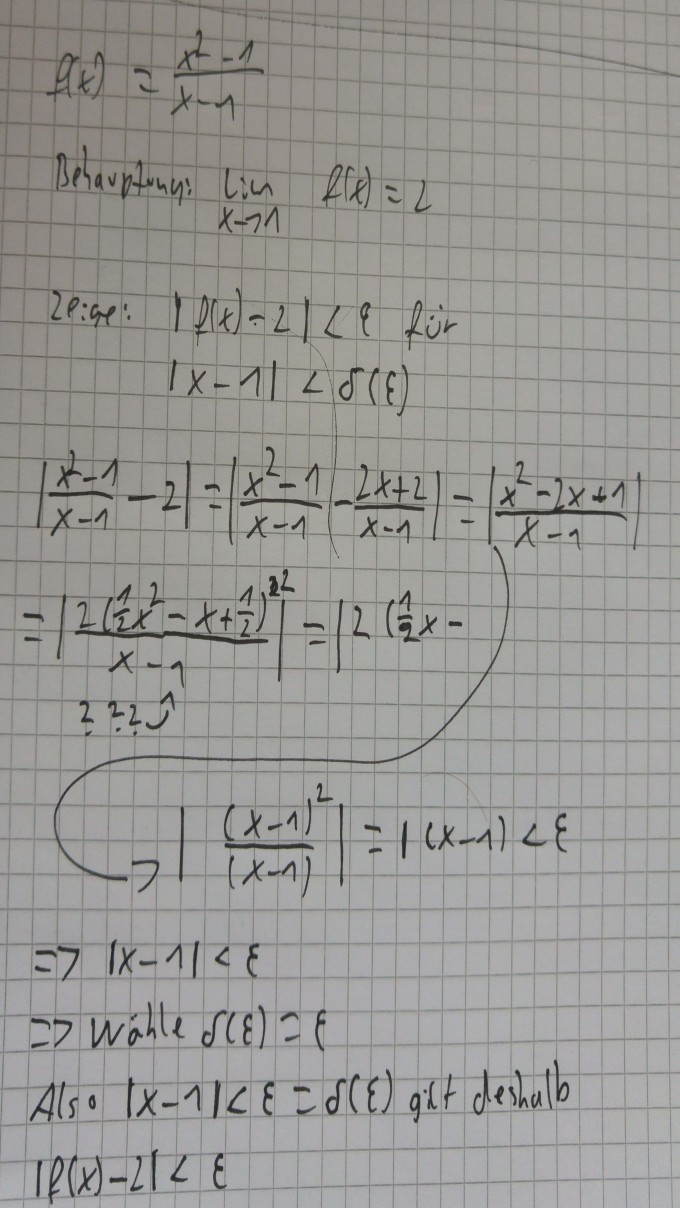 f(x) = (x² - 1)/(x - 1)
Behauptung: lim x→1 f(x) = 2
Zeige: |f(x) - 2| < ε für
|x - 1| < δ(ε)
|(x² - 1)/(x - 1) - 2| = |(x² - 1)/(x - 1) - (2x + 2)/(x - 1)| = |(x² - 2x + 1)/(x - 1)|
= |2(½x² - x + ½)²/(x - 1)| = |2(½x -
? ? ?
|(x - 1)²/(x - 1)| = |(x - 1) < ε
=> |x - 1| < ε
=> Wähle δ(ε) = ε
Also |x - 1| < ε = δ(ε) gilt deshalb
|f(x) - 2| < ε